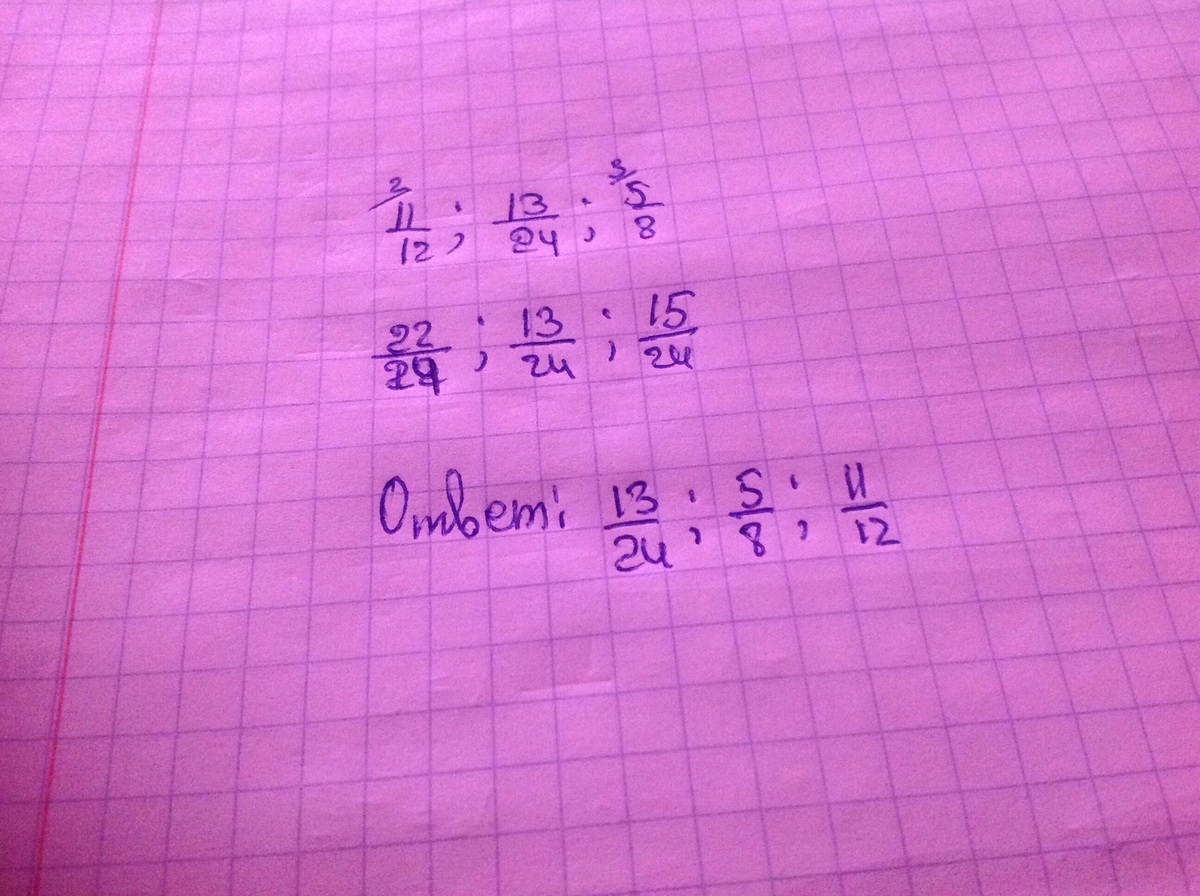 2/ 11/12 ; 13/24 ; 3/ 5/8
22/24 ; 13/24 ; 15/24
Ответ: 13/24 ; 5/8 ; 11/12